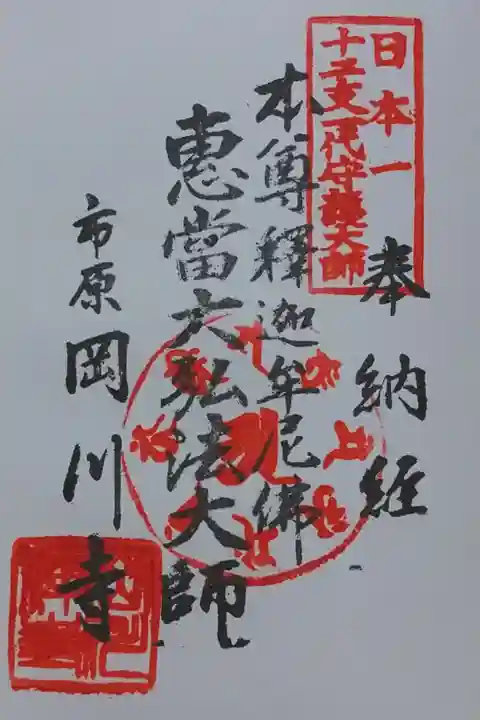 日本一
十二支一代守護大師
奉納経
本尊釋迦牟尼佛
惠當大弘法大師
市原岡川寺